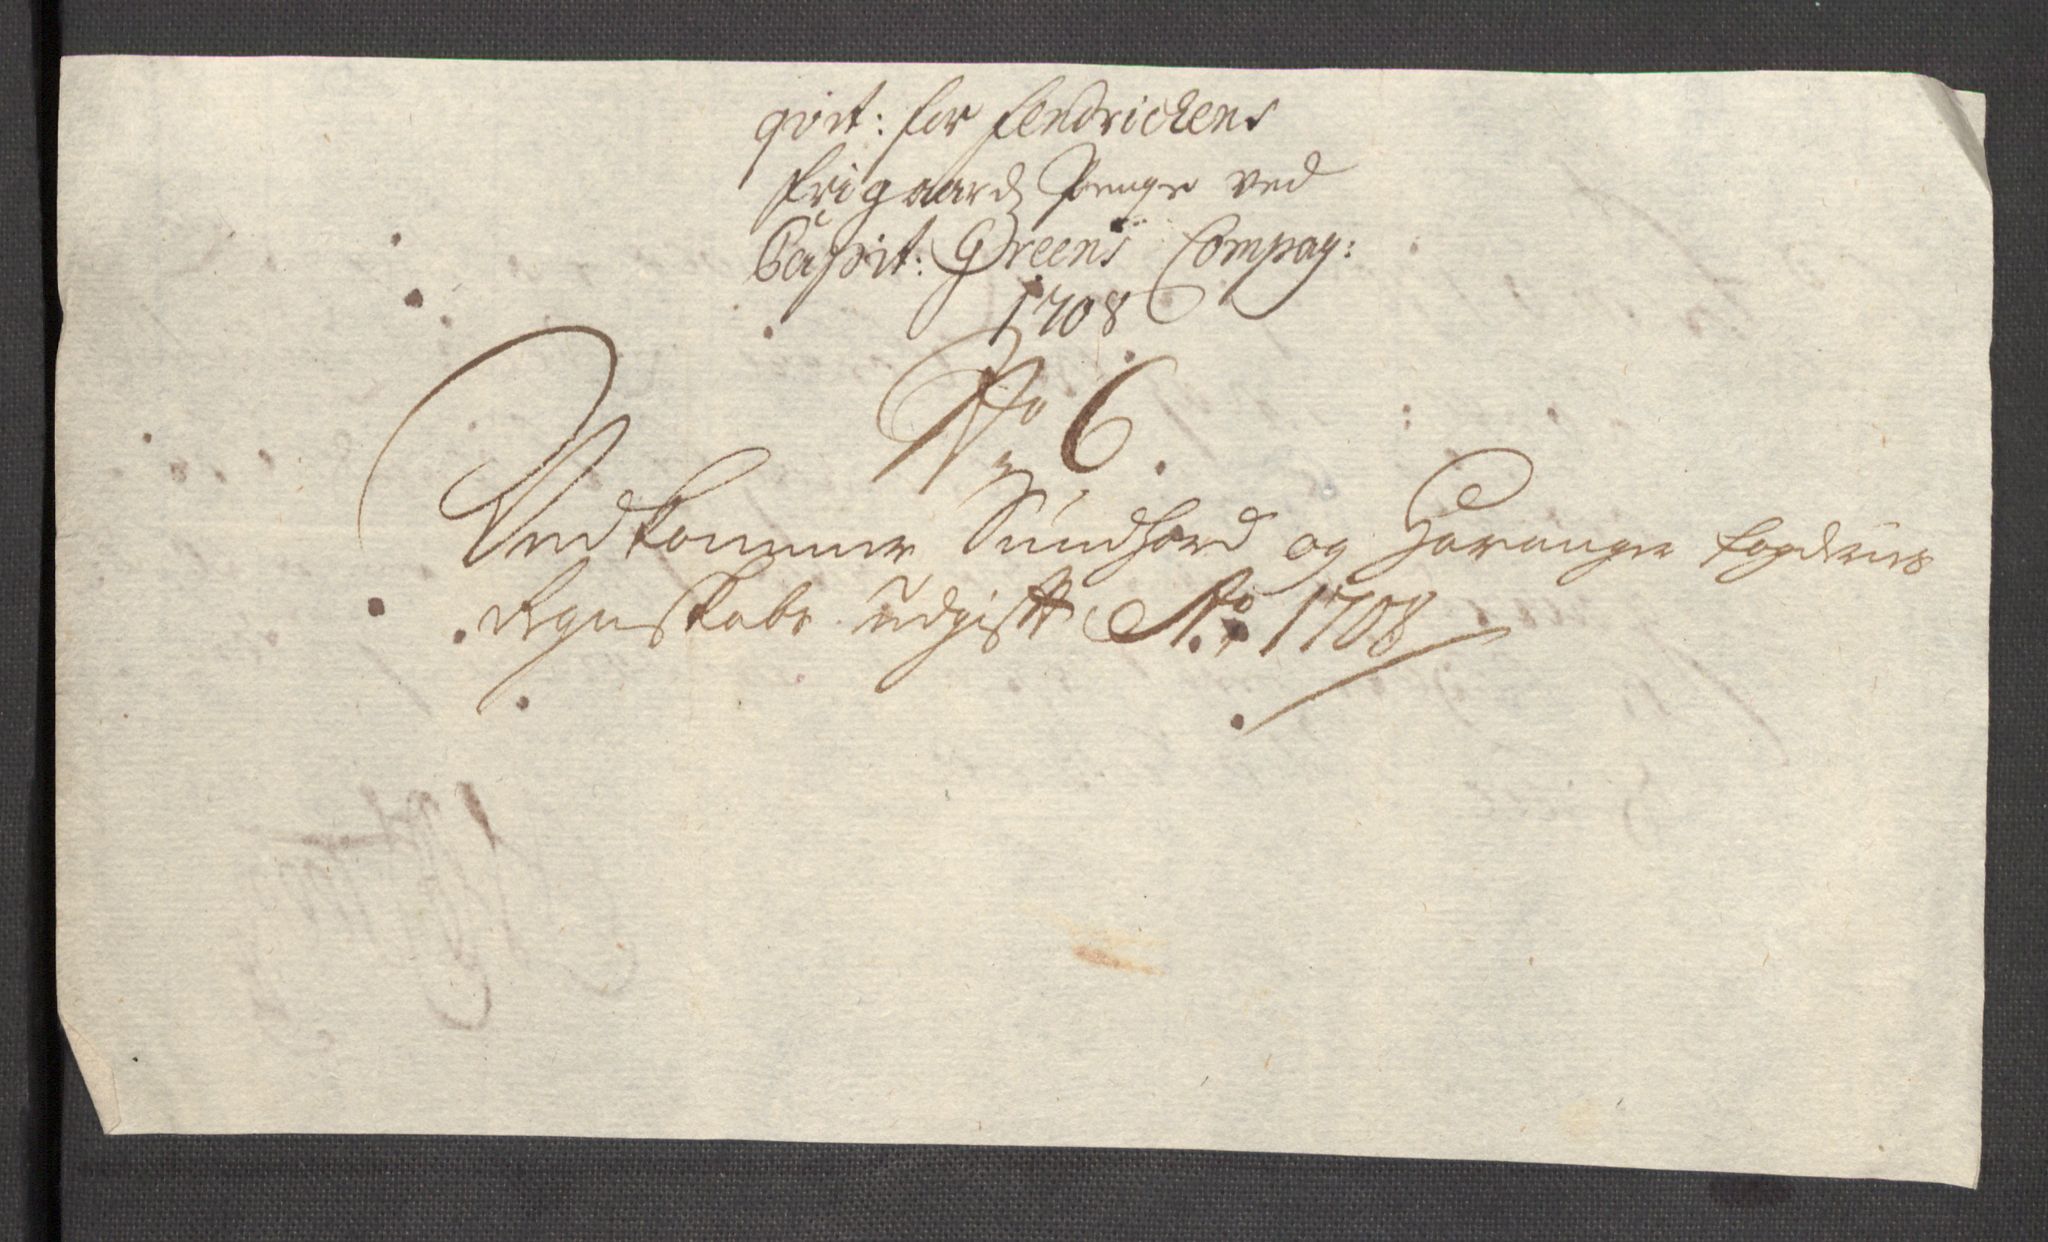 qvit: for fendrickens
frigaards Penge ved
Capit: Greens Compag:
1708
No 6.
Vedkommer Sundhord og Haranger fogderies
Regnskabs udgifft Ao 1708